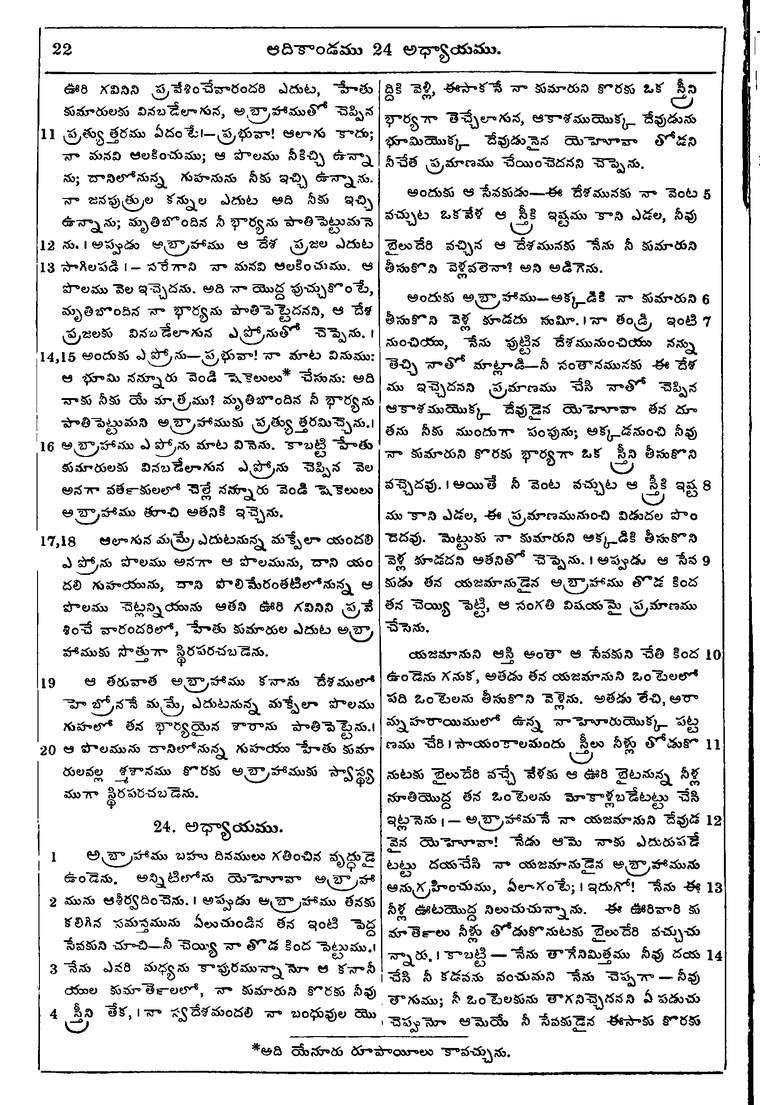 22 ఆదికాండము 24 అధ్యాయము.
ఊరి గవినిని ప్రవేశించేవారందరి ఎదుట, హేతు
కుమారులకు వినబడేలాగున, అబ్రాహాముతో చెప్పిన
11 ప్రత్యుత్తరము ఏదంటే!—ప్రభువా! ఆలాగు కాదు;
నా మనవి ఆలకించుము; ఆ పొలము నీకిచ్చి ఉన్నా
ను; దానిలోనున్న గుహనును నీకు ఇచ్చి ఉన్నాను.
నా జనపుత్రుల కన్నుల ఎదుట అది నీకు ఇచ్చి
ఉన్నాను; మృతిబొందిన నీ భార్యను పాతిపెట్టుమనె
12 ను. ।అప్పుడు అబ్రాహాము ఆ దేశ ప్రజల ఎదుట
13 సాగిలపడి।— సరేగాని నా మనవి ఆలకించుము. ఆ
పొలము వెల ఇచ్చెదను. అది నా యొద్ద పుచ్చుకొంటే,
మృతిబొందిన నా భార్యను పాతిపెట్టెదనని, ఆ దేశ
ప్రజలకు వినబడేలాగున ఎఫ్రోనుతో చెప్పెను. ।
14,15 అందుకు ఎఫ్రోను—ప్రభువా! నా మాట వినుము:
ఆ భూమి నన్నూరు వెండి షెకెలులు* చేసును: అది
నాకు నీకు యే మాత్రము? మృతిబొందిన నీ భార్యను
పాతిపెట్టుమని అబ్రాహాముకు ప్రత్యుత్తరమిచ్చెను.।
16 అబ్రాహాము ఎఫ్రోను మాట వినెను. కాబట్టి హేతు
కుమారులకు వినబడేలాగున ఎఫ్రోను చెప్పిన వెల
అనగా వర్తకులలో చెల్లే నన్నూరు వెండి షెకెలులు
అబ్రాహాము తూచి అతనికి ఇచ్చెను.
17,18 ఆలాగున మమ్రే ఎదుటనున్న మక్పేలా యందలి
ఎఫ్రోను పొలము అనగా ఆ పొలమును, దాని యం
దలి గుహయును, దాని పొలిమేరంతటిలోనున్న ఆ
పొలము చెట్లన్నియును అతని ఊరి గవినిని ప్రవే
శించే వారందరిలో, హేతు కుమారుల ఎదుట అబ్రా
హాముకు సొత్తుగా స్థిరపరచబడెను.
19 ఆ తరువాత అబ్రాహాము కనాను దేశములో
హెబ్రోననే మమ్రే ఎదుటనున్న మక్పేలా పొలము
గుహలో తన భార్యయైన శారాను పాతిపెట్టెను.।
20 ఆ పొలమును దానిలోనున్న గుహయు హేతు కుమా
రులవల్ల శ్మశానము కొరకు అబ్రాహాముకు స్వాస్థ్య
ముగా స్థిరపరచబడెను.
24. అధ్యాయము.
1 అబ్రాహాము బహు దినములు గతించిన వృద్ధుడై
ఉండెను. అన్నిటిలోను యెహోవా అబ్రాహా
2 మును ఆశీర్వదించెను. ।అప్పుడు అబ్రాహాము తనకు
కలిగిన సమస్తమును ఏలుచుండిన తన ఇంటి పెద్ద
సేవకుని చూచి—నీ చెయ్యి నా తొడ కింద పెట్టుము.।
3 నేను ఎవరి మధ్యను కాపురమున్నానో ఆ కనానీ
యుల కుమార్తెలలో, నా కుమారుని కొరకు నీవు
4 స్త్రీని తేక, ।నా స్వదేశమందలి నా బంధువుల యొ
ద్దికి వెళ్లి, ఈసాకనే నా కుమారుని కొరకు ఒక స్త్రీని
భార్యగా తెచ్చేలాగున, ఆకాశముయొక్క దేవుడును
భూమియొక్క దేవుడునైన యెహోవా తోడని
నీచేత ప్రమాణము చేయించెదనని చెప్పెను.
అందుకు ఆ సేవకుడు—ఈ దేశమునకు నా వెంట 5
వచ్చుట ఒకవేళ ఆ స్త్రీకి ఇష్టము కాని ఎడల, నీవు
బైలుదేరి వచ్చిన ఆ దేశమునకు నేను నీ కుమారుని
తీసుకొని వెళ్లవలెనా? అని అడిగెను.
అందుకు అబ్రాహాము—అక్కడికి నా కుమారుని 6
తీసుకొని వెళ్ల కూడదు సుమీ. ।నా తండ్రి ఇంటి 7
నుంచియు, నేను పుట్టిన దేశమునుంచియు నన్ను
తెచ్చి నాతో మాట్లాడి—నీ సంతానమునకు ఈ దేశ
ము ఇచ్చెదనని ప్రమాణము చేసి నాతో చెప్పిన
ఆకాశముయొక్క దేవుడైన యెహోవా తన దూ
తను నీకు ముందుగా పంపును; అక్కడనుంచి నీవు
నా కుమారుని కొరకు భార్యగా ఒక స్త్రీని తీసుకొని
వచ్చెదవు. ।అయితే నీ వెంట వచ్చుట ఆ స్త్రీకి ఇష్ట 8
ము కాని ఎడల, ఈ ప్రమాణమునుంచి విడుదల పొం
దెదవు. మెట్టుకు నా కుమారుని అక్కడికి తీసుకొని
వెళ్ల కూడదని అతనితో చెప్పెను. ।అప్పుడు ఆ సేవ 9
కుడు తన యజమానుడైన అబ్రాహాము తొడ కింద
తన చెయ్యి పెట్టి, ఆ సంగతి విషయమై ప్రమాణము
చేసెను.
యజమానుని ఆస్తి అంతా ఆ సేవకుని చేతి కింద 10
ఉండెను గనుక, అతడు తన యజమానుని ఒంటెలలో
పది ఒంటెలను తీసుకొని వెళ్లెను. అతడు లేచి, అరా
మ్నహరాయిములో ఉన్న నాహోరుయొక్క పట్ట
ణము చేరి।సాయంకాలమందు స్త్రీలు నీళ్లు తోడుకొ 11
నుటకు బైలుదేరి వచ్చే వేళకు ఆ ఊరి బైటనున్న నీళ్ల
నూతియొద్ద తన ఒంటెలను మోకాళ్లబడేటట్టు చేసి
ఇట్లనెను।— అబ్రాహామనే నా యజమానుని దేవుడ 12
వైన యెహోవా! నేడు ఆమె నాకు ఎదురుపడే
టట్టు దయచేసి నా యజమానుడైన అబ్రాహామును
అనుగ్రహించుము, ఏలాగంటే;।ఇదుగో! నేను ఈ 13
నీళ్ల ఊటయొద్ద నిలుచుచున్నాను. ఈ ఊరివారి కు
మార్తెలు నీళ్లు తోడుకొనుటకు బైలుదేరి వచ్చుచు
న్నారు.।కాబట్టి— నేను తాగేనిమిత్తము నీవు దయ 14
చేసి నీ కడవను వంచుమని నేను చెప్పగా — నీవు
తాగుము; నీ ఒంటెలకును తాగనిచ్చెదనని ఏ పడుచు
చెప్పునో ఆమెయే నీ సేవకుడైన ఈసాకు కొరకు
*అది యేనూరు రూపాయీలు కావచ్చును.